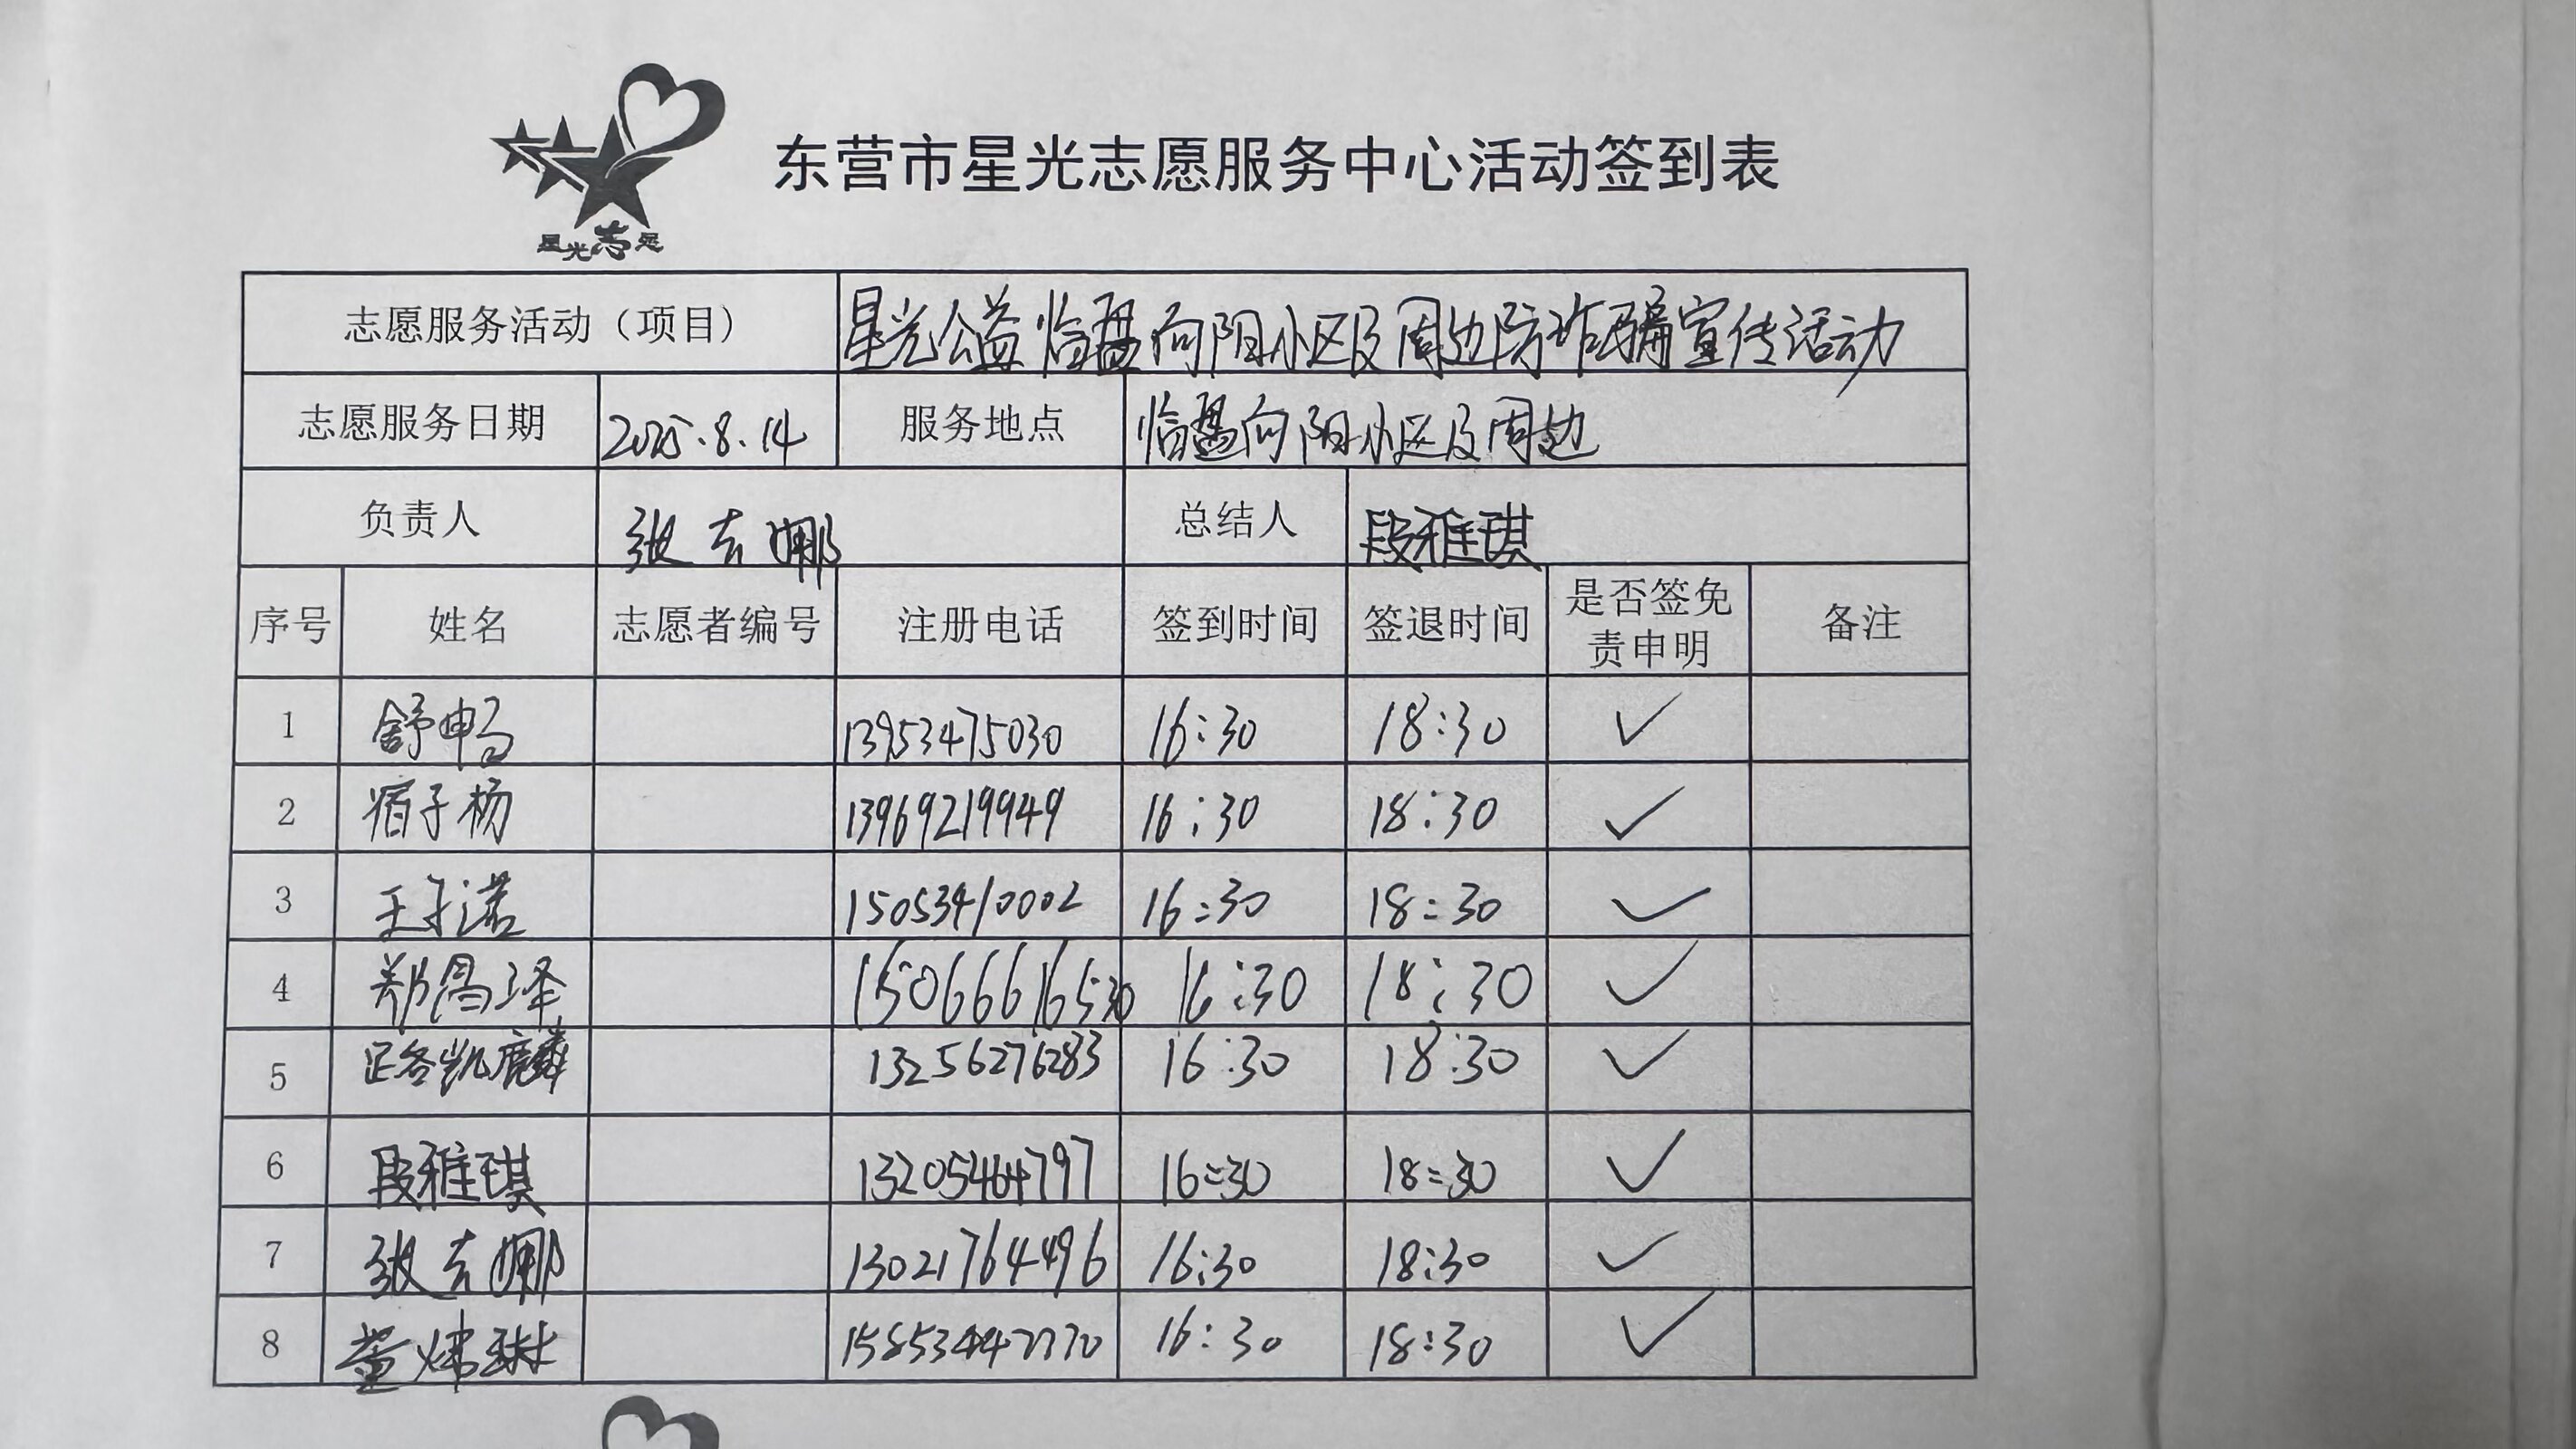 东营市星光志愿服务中心活动签到表
星光志愿
志愿服务活动（项目） 星光公益临盘向阳小区及周边防诈骗宣传活动
志愿服务日期 2025.8.14 服务地点 临盘向阳小区及周边
负责人 张志娜 总结人 段雅琪
序号 姓名 志愿者编号 注册电话 签到时间 签退时间 是否签免责申明 备注
1 舒申 13953475030 16:30 18:30 ✓
2 宿子杨 13969219949 16:30 18:30 ✓
3 王子诺 15053410002 16:30 18:30 ✓
4 郑昌泽 15066616530 16:30 18:30 ✓
5 凯麟 13256276283 16:30 18:30 ✓
6 段雅琪 13205464797 16:30 18:30 ✓
7 张志娜 13021764496 16:30 18:30 ✓
8 董炜琳 16:30 18:30 ✓